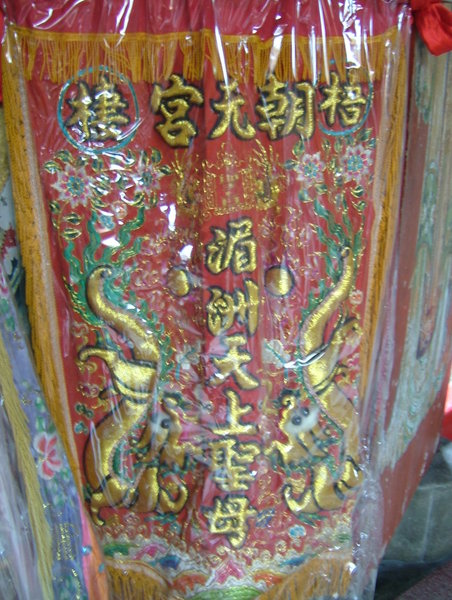 梧朝元宮棲
湄洲天上聖母